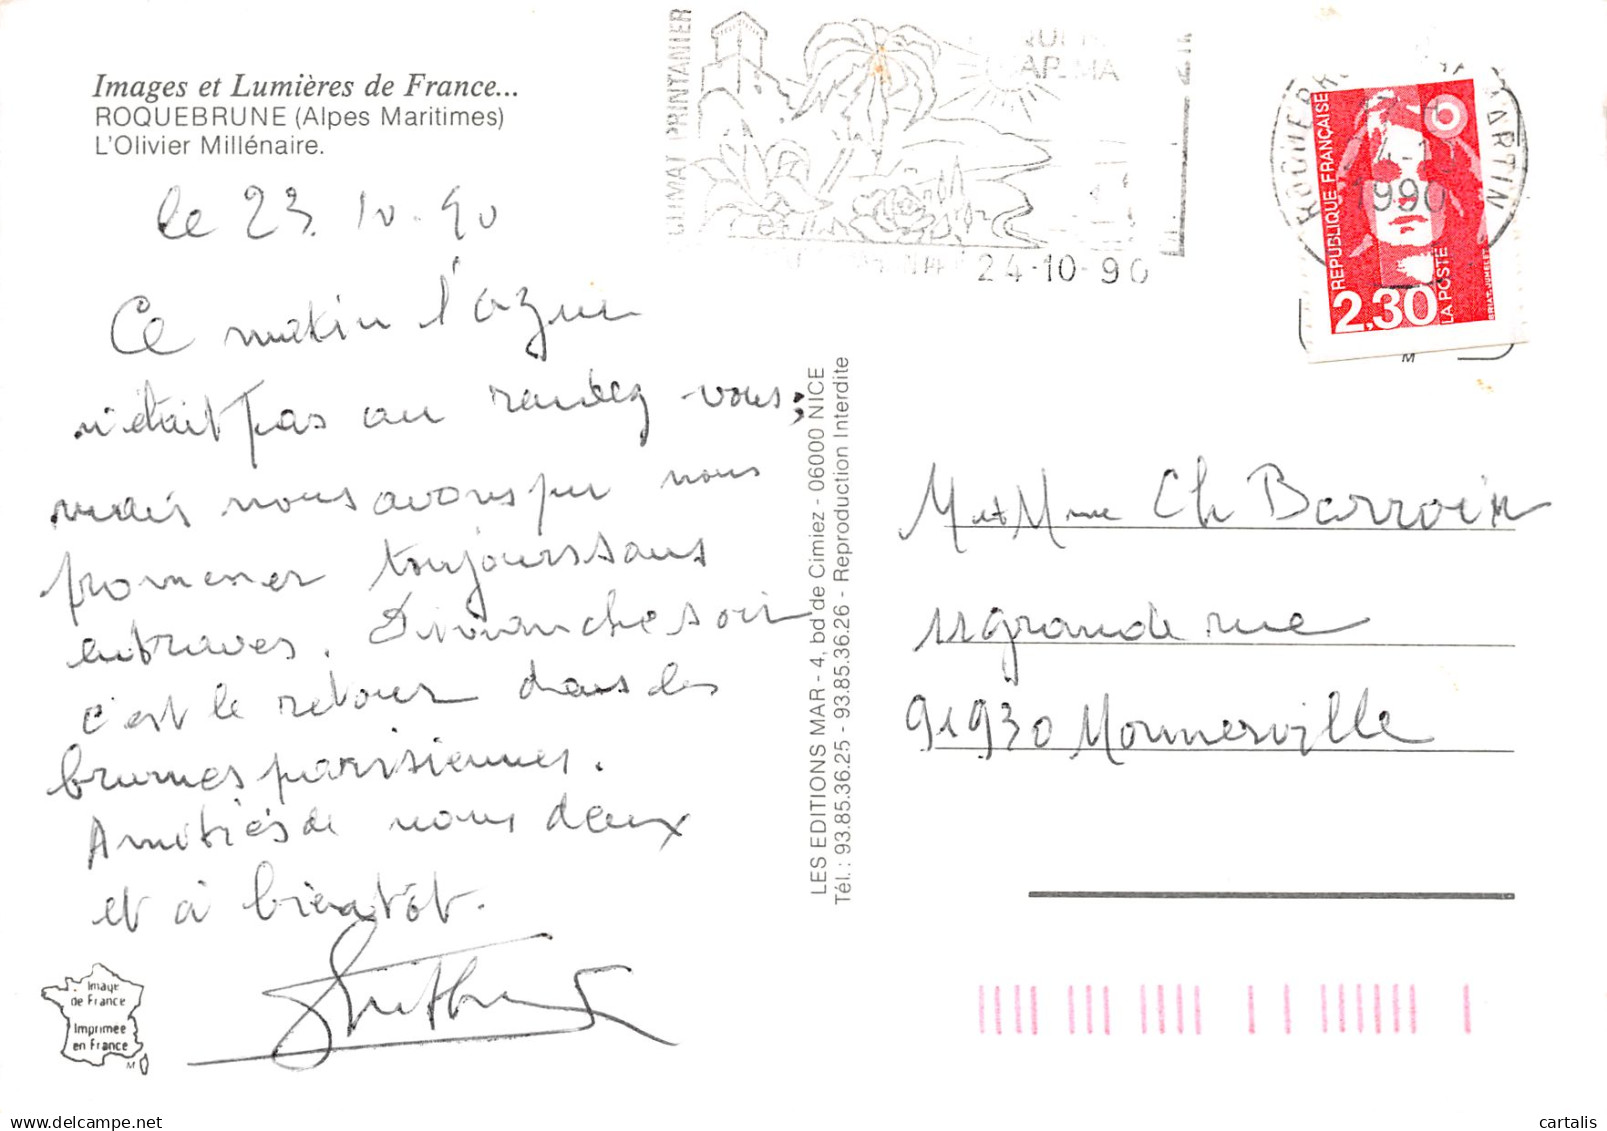 Images et Lumières de France...
ROQUEBRUNE (Alpes Maritimes)
L'Olivier Millénaire.
le 23. 10-90
Ce matin l'azur
n'était pas au rendez vous;
mais nous avons pu nous
promener toujours sans
entraves. Dimanche soir
c'est le retour dans les
brumes parisiennes.
Amitiés de nous deux
et à bientôt.
Image
de France
Imprimée
en France
M
CLIMAT PRINTANIER
24-10-90
MARTIN
1990
REPUBLIQUE FRANÇAISE
2,30
LA POSTE
M
LES EDITIONS MAR - 4, bd de Cimiez - 06000 NICE
Tél. : 93.85.36.25 - 93.85.36.26 - Reproduction Interdite
M et Mme Ch Barroin
11 grande rue
91930 Monnerville
cartalis